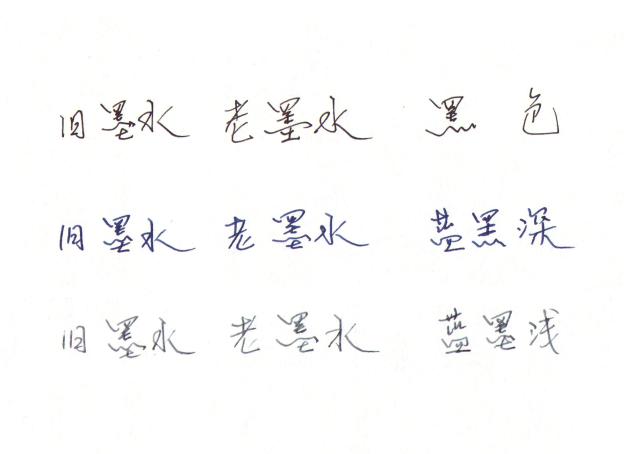 旧墨水 老墨水 黑 色
旧墨水 老墨水 蓝黑深
旧墨水 老墨水 蓝墨浅